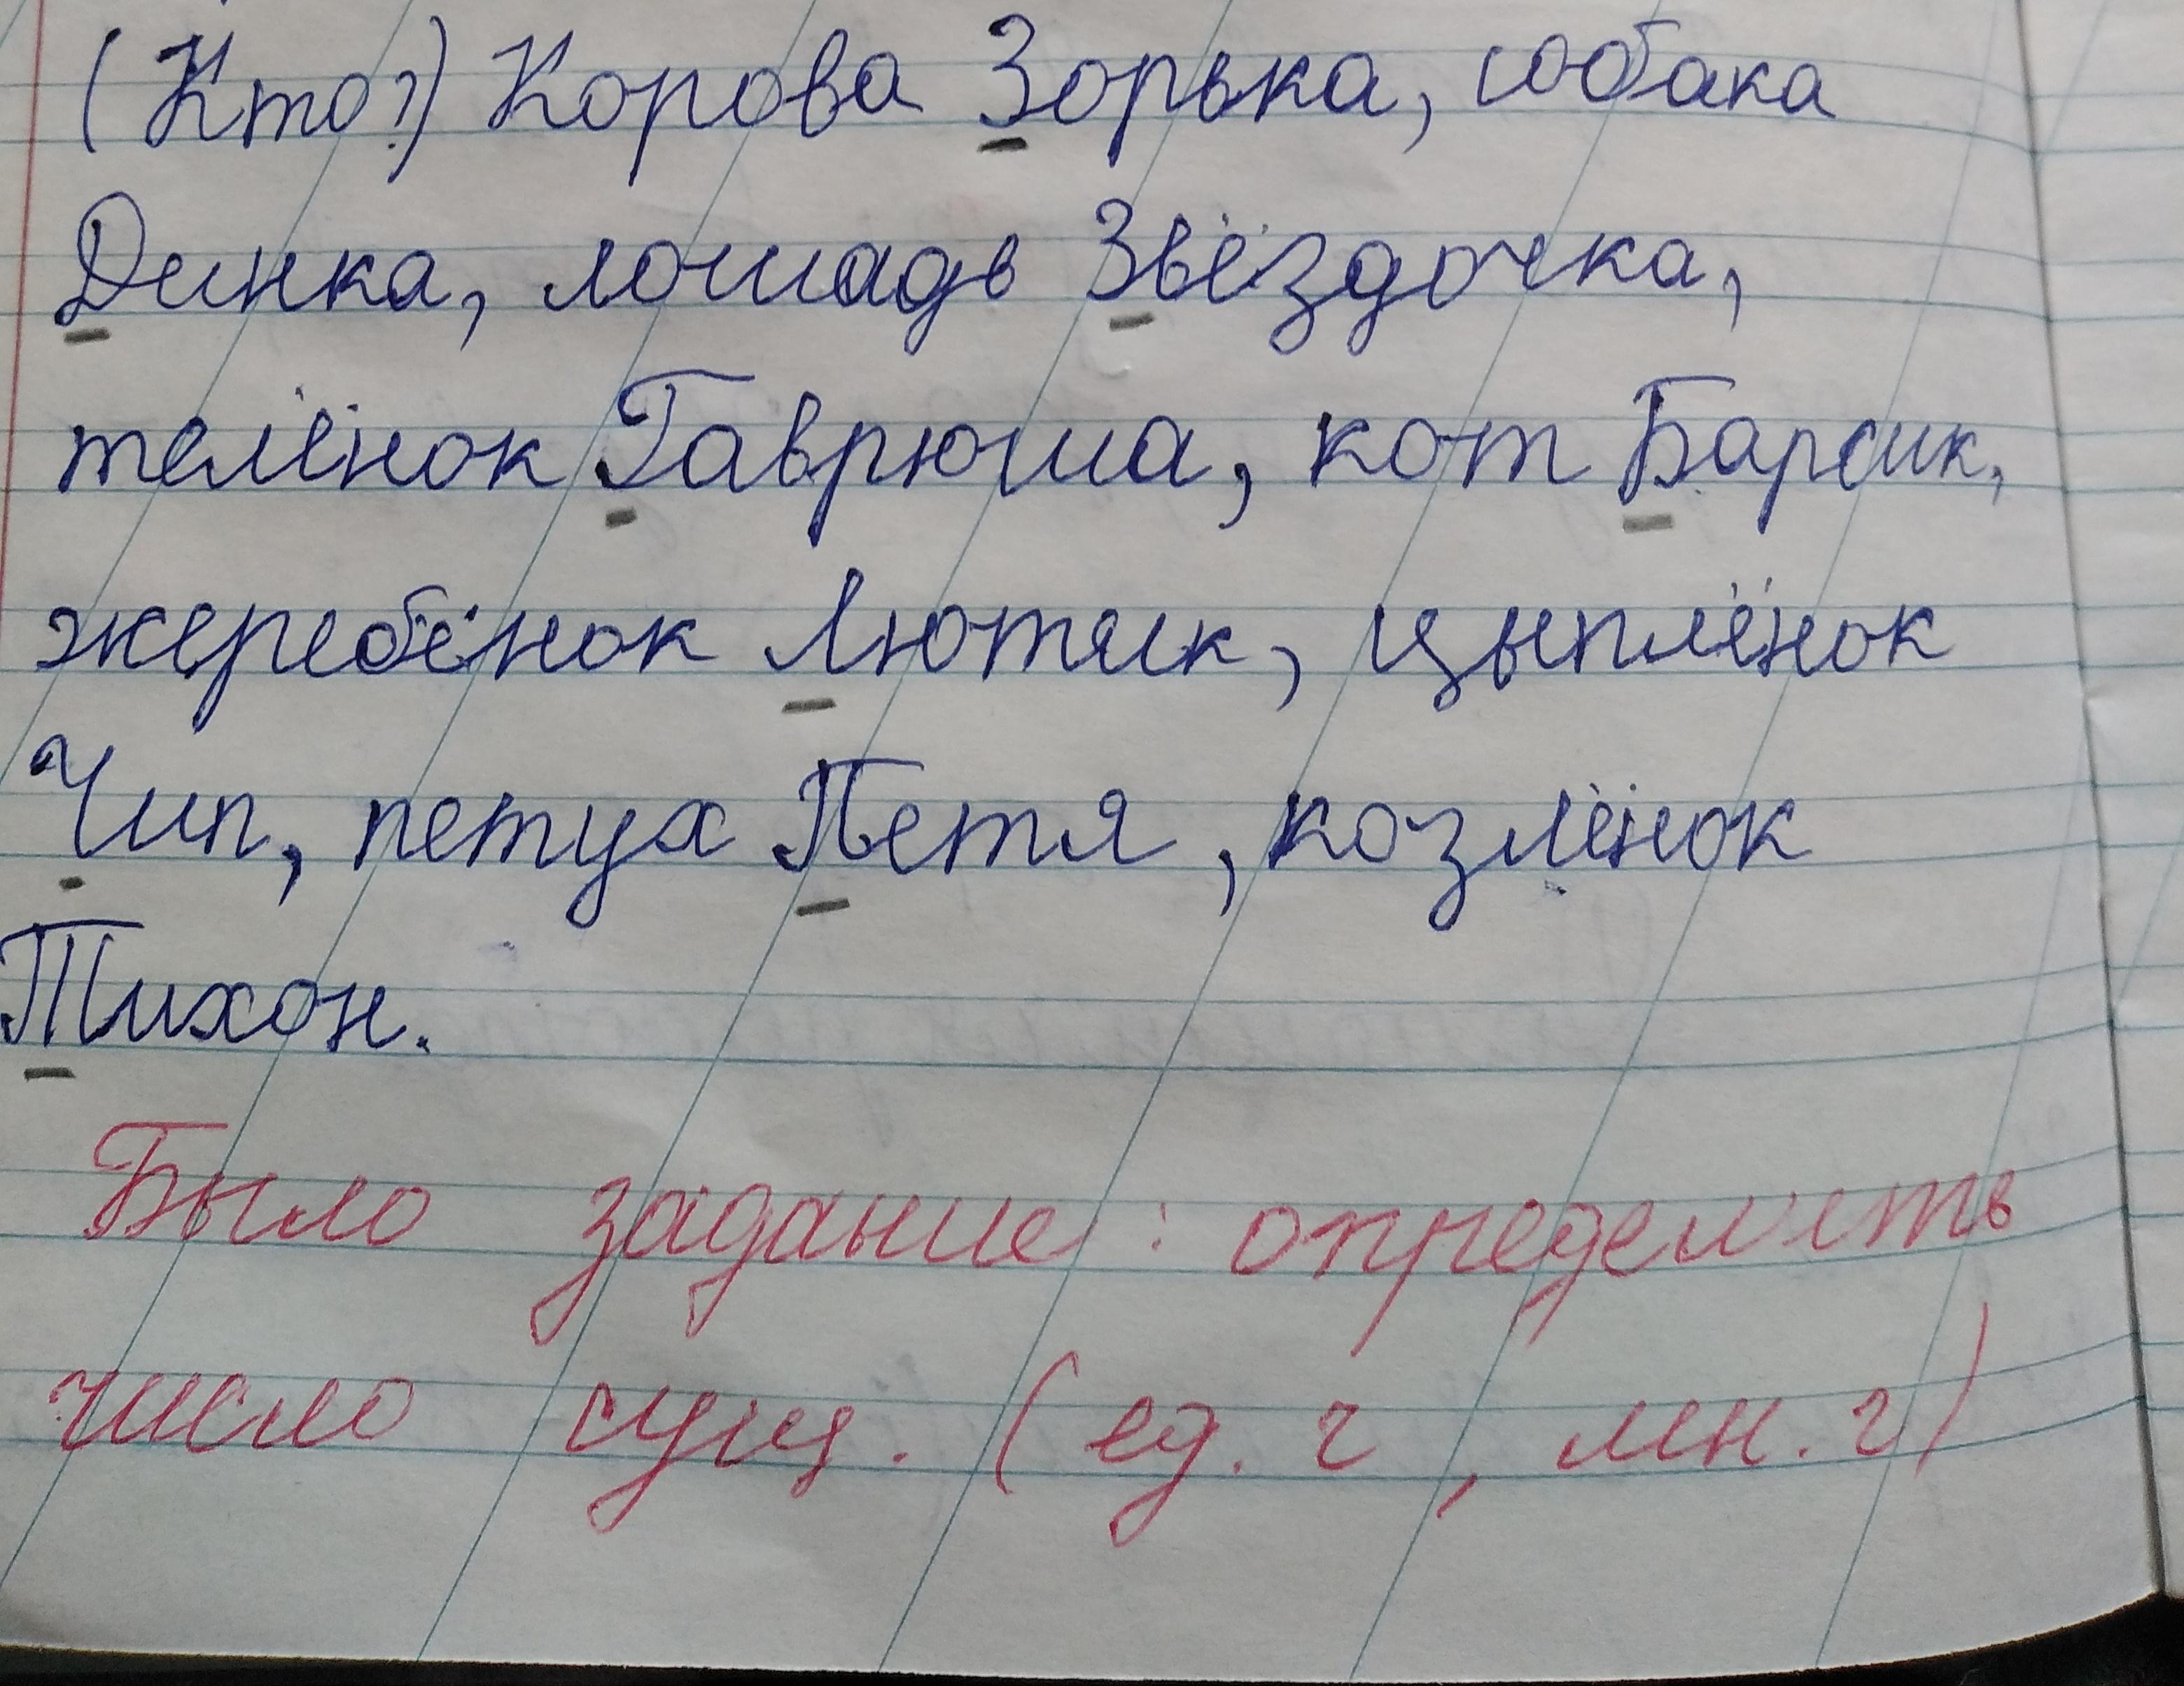 (Кто?) Корова Зорька, собака
Динка, лошадь Звёздочка,
телёнок Гаврюша, кот Барсик,
жеребёнок Лютик, цыплёнок
Чип, петух Петя, козлёнок
Тихон.
Было задание: определить
число сущ. (ед. ч, мн. ч)